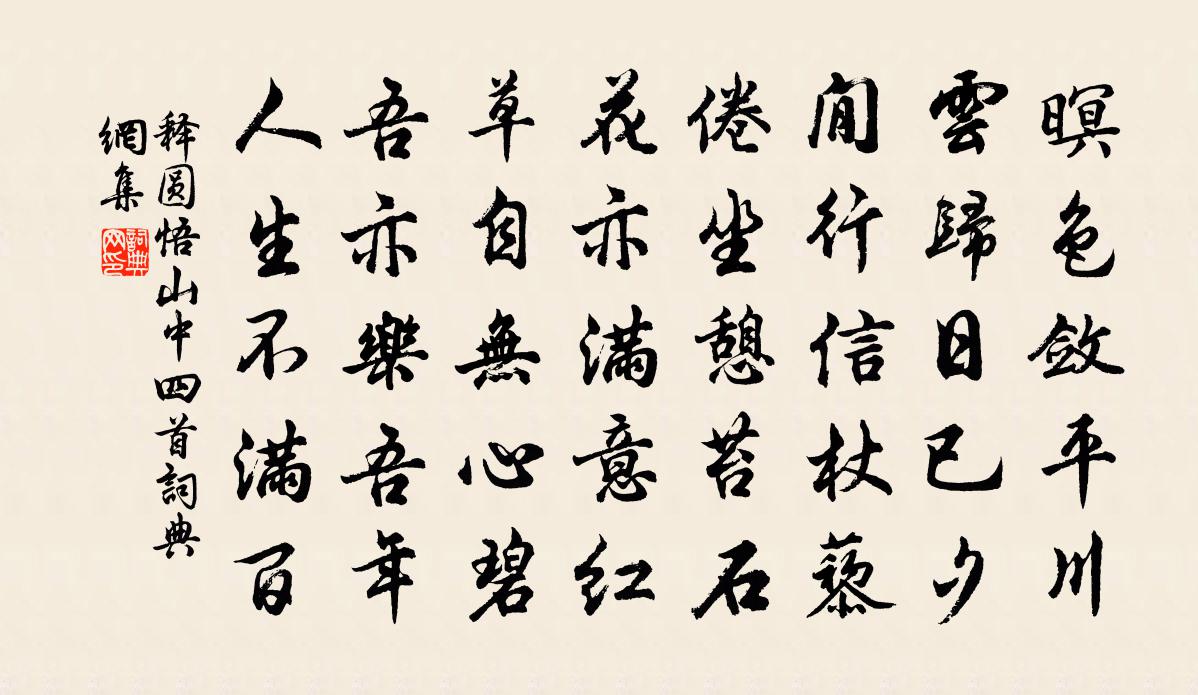 暝色斂平川
雲歸日已夕
閒行信杖藜
倦坐憩苔石
花亦滿意红
草自無心碧
吾亦樂吾年
人生不滿百
释圆悟山中四首詞典
網集
詞典
网印